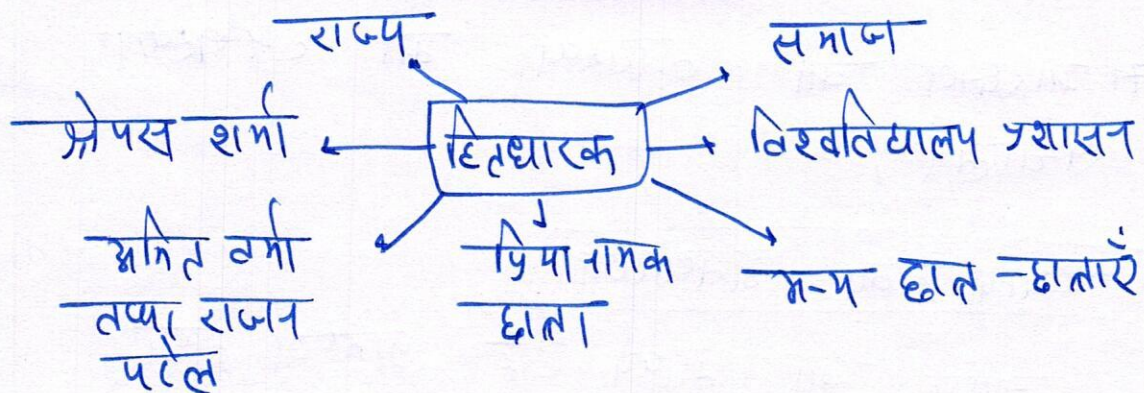 राज्य
समाज
श्रेयस शर्मा
हितधारक
विश्वविद्यालय प्रशासन
अमित वर्मा
तथा राजन
पटेल
प्रिया नामक
छात्रा
अन्य छात्र-छात्राएँ